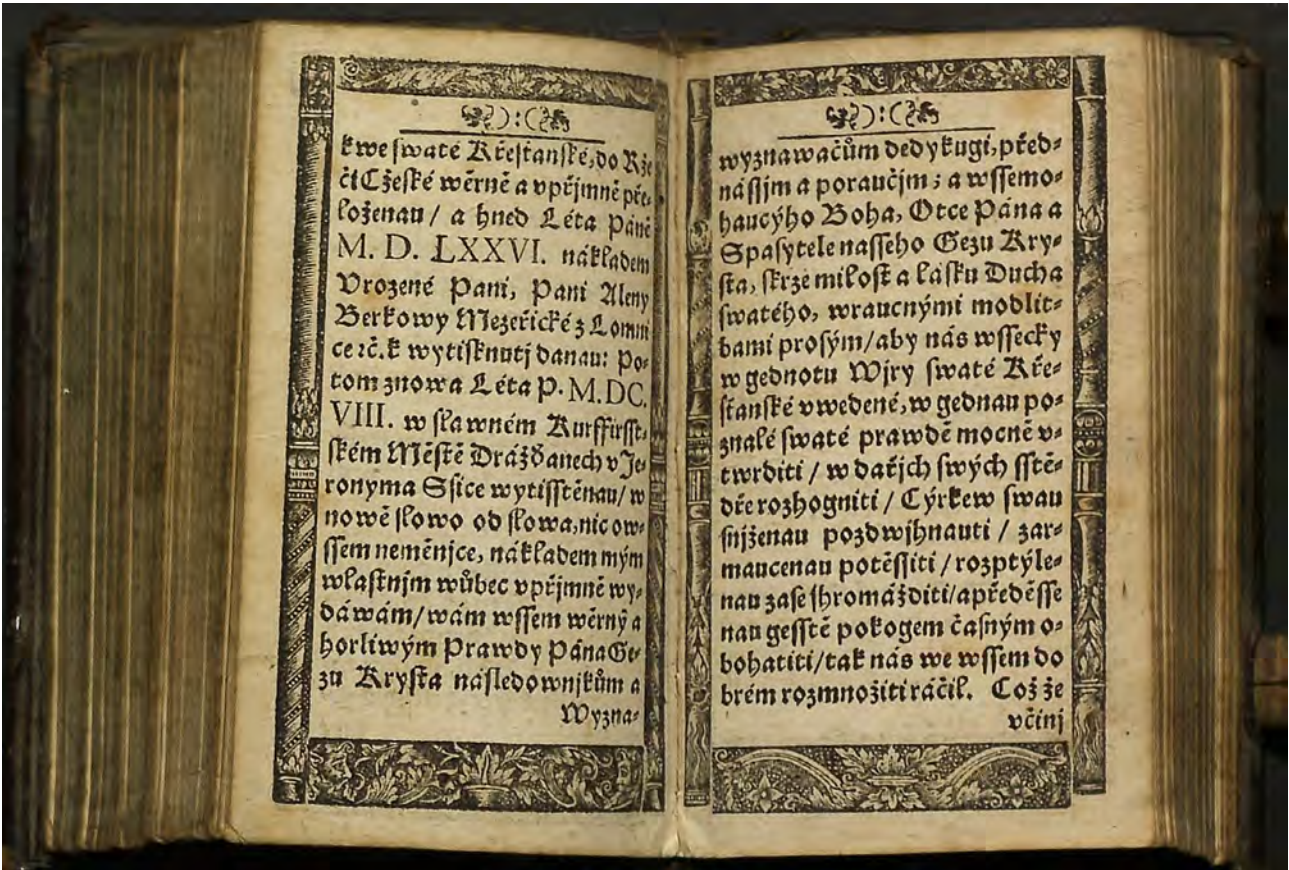 kwe swaté Křesťanské, do Rže
či Cžeské wěrně a vpřjmně pře-
loženau / a hned Léta Páně
M. D. LXXVI. nákladem
Vrozené Paní, Paní Aleny
Berkowy Mezeřické z Lomni
ce ꝛč. k wytisknutj danau: Po-
tom znowa Léta P. M.DC.
VIII. w sławném Kurffirsst-
ském Městě Drážďanech v Je-
ronyma Ssice wytisstěnau / w
nowě słowo od słowa, nic ow-
ssem neměnjce, nákładem mým
wlastnjm wůbec vpřjmně wy-
dáwám / wám wssem wěrný a
horliwým Prawdy Pána Ge-
zu Krysta následownjkům a
Wyzna-
wyznawačům dedykugi, před-
nássjm a poraučjm; a wssemo-
haucýho Boha, Otce Pána a
Spasytele nasseho Gezu Kry-
sta, skrze milost a lásku Ducha
swatého, wraucnými modlit-
bami prosým / aby nás wssecky
w gednotu Wjry swaté Kře-
sťanské vwedené, w gednau po-
znalé swaté prawdě mocně v-
twrditi / w dařjch swých sstě-
dře rozhogniti / Cýrkew swau
snjženau pozdwjhnauti / zar-
maucenau potěssiti / rozptýle-
nau zase shromážditi / a předěsse
nau gesstě pokogem časným o-
bohatiti / tak nás we wssem do
brém rozmnožiti ráčil. Což že
včinj